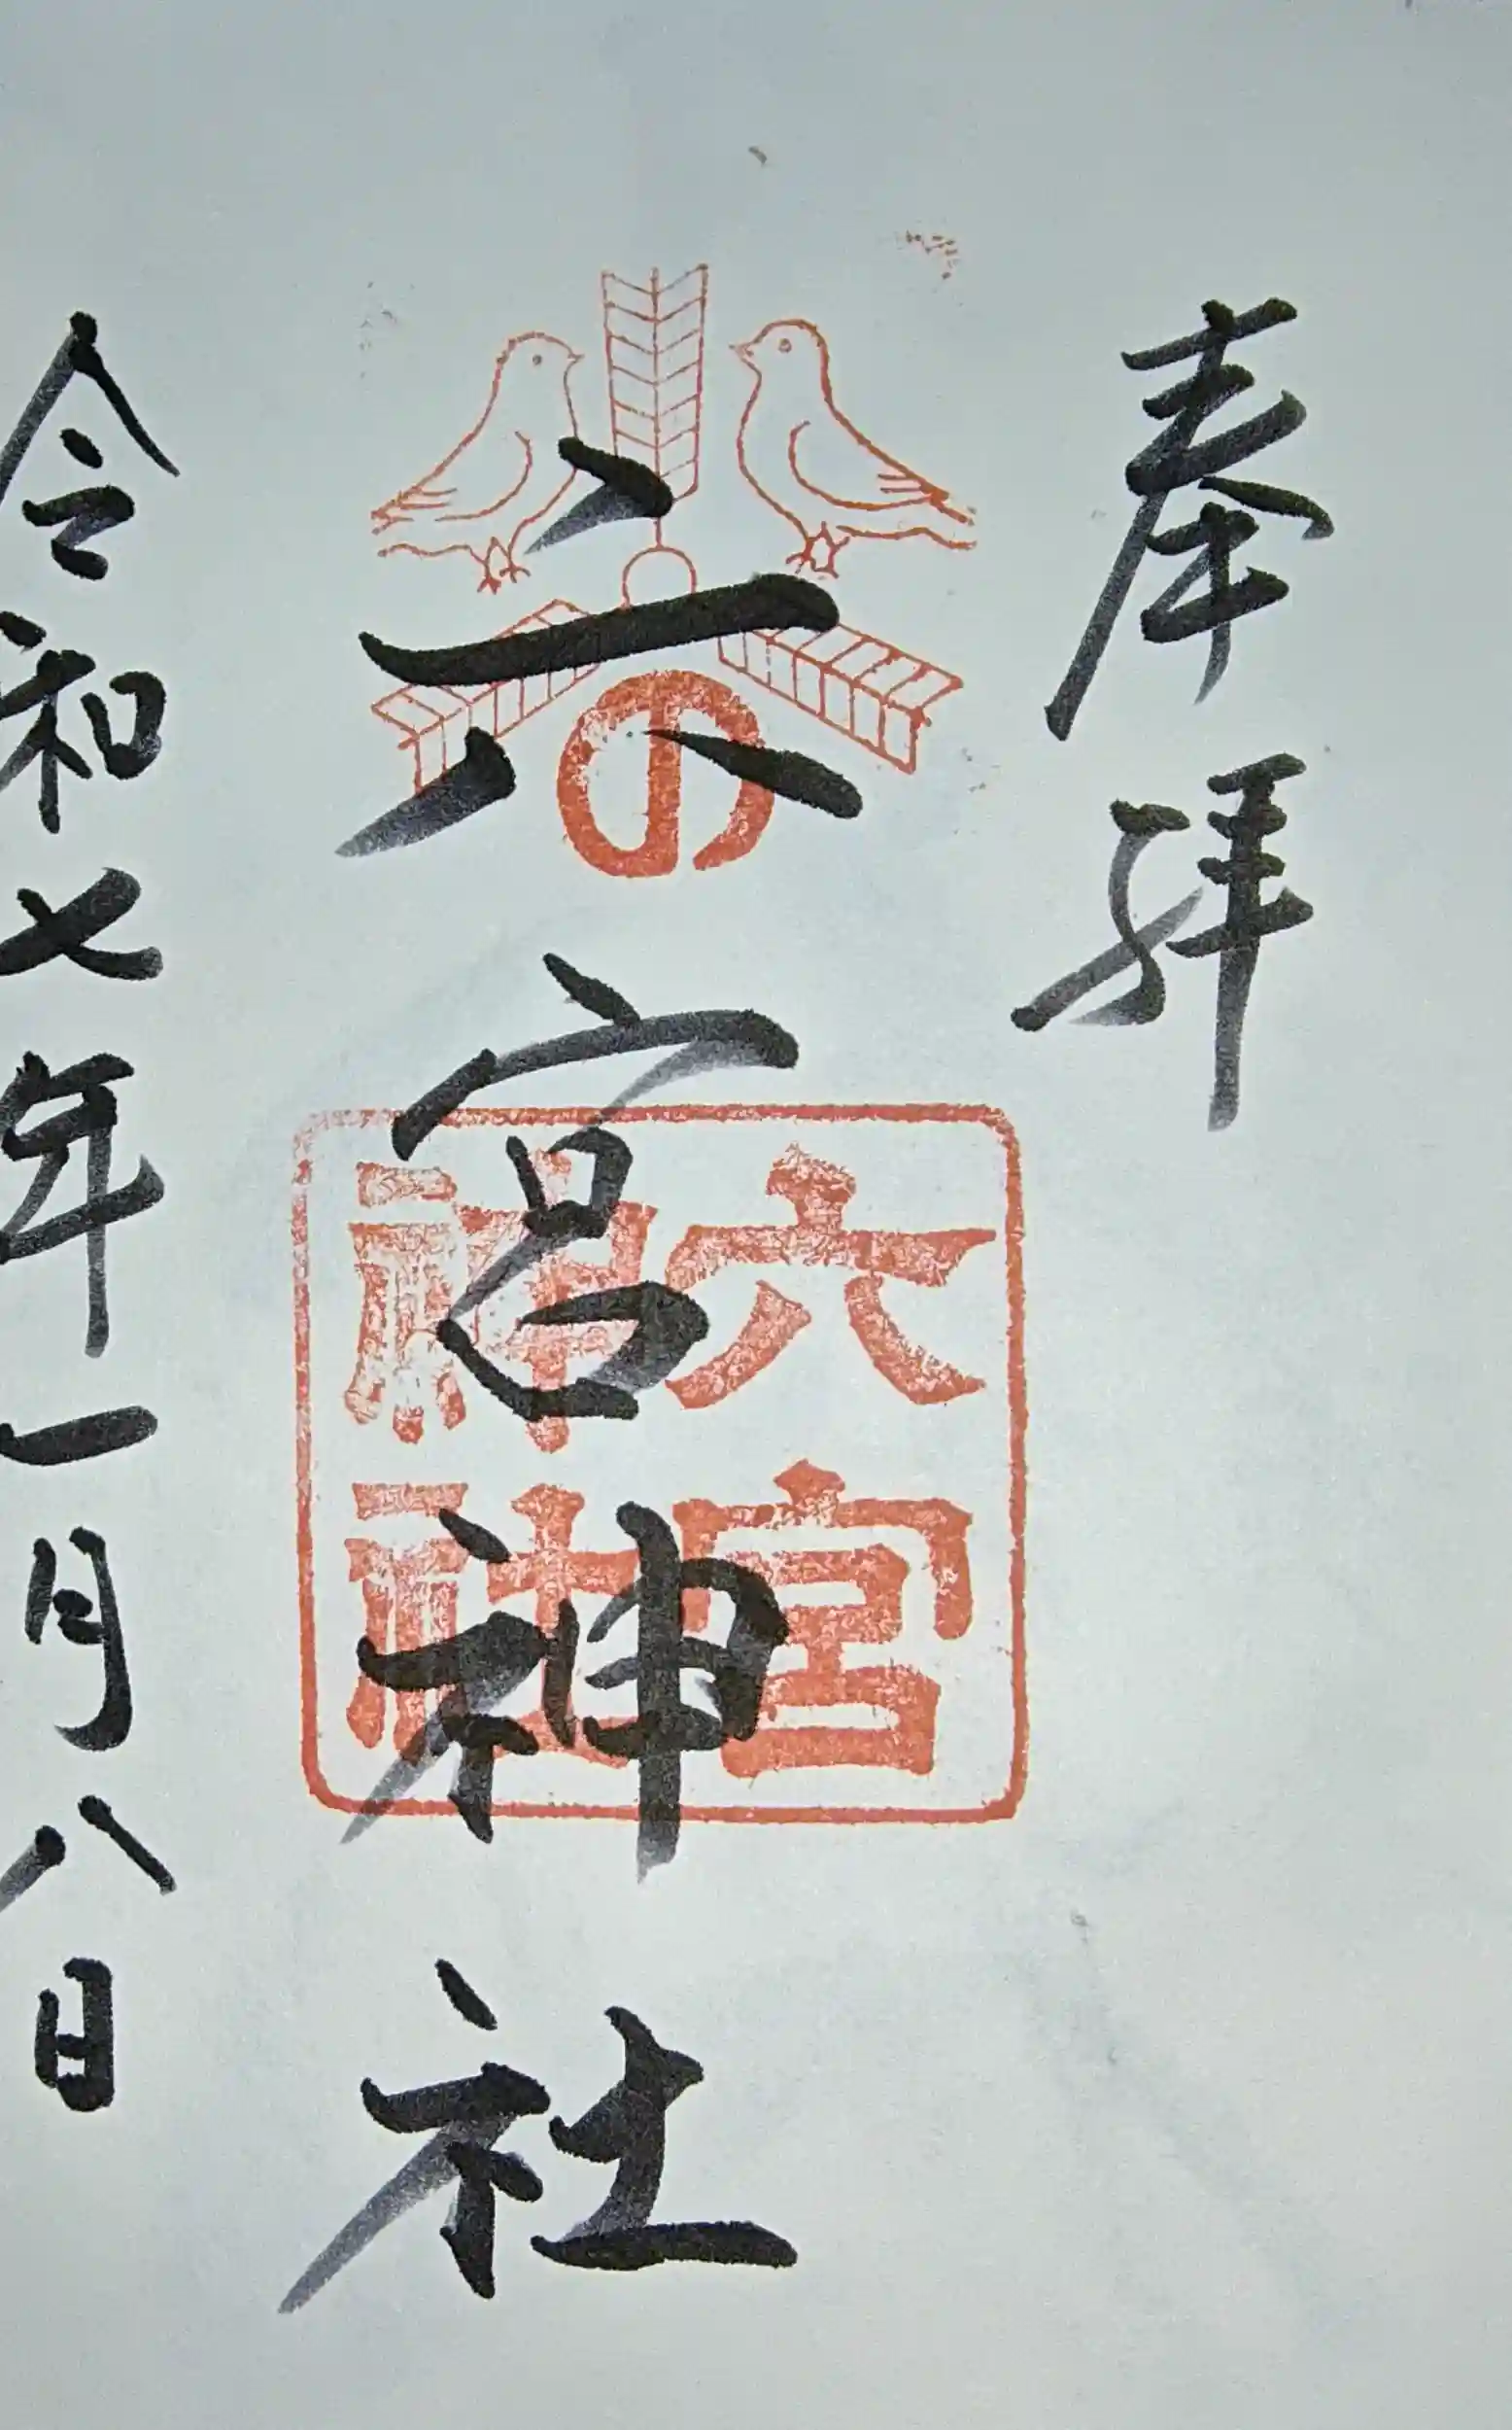 奉拝
六宮神社
の
六宮
神社
令和七年一月八日